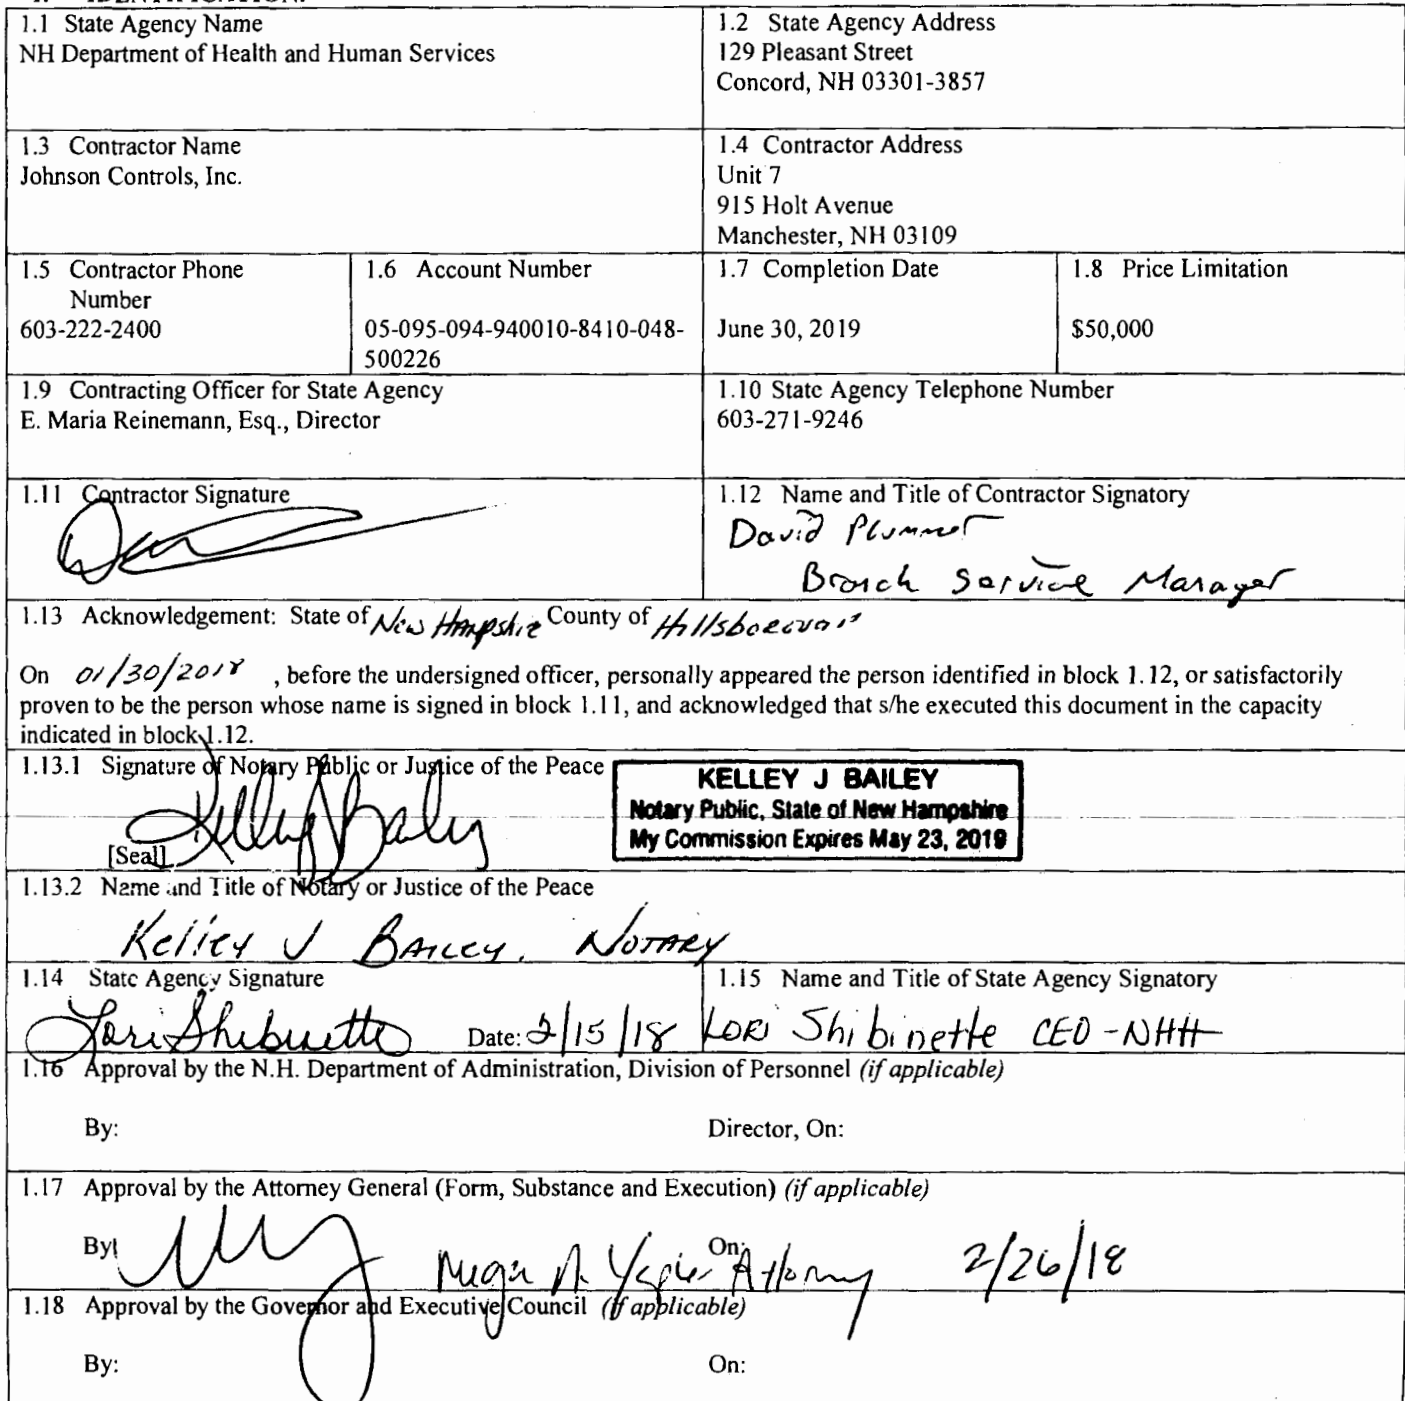 1.1 State Agency Name
NH Department of Health and Human Services
1.2 State Agency Address
129 Pleasant Street
Concord, NH 03301-3857
1.3 Contractor Name
Johnson Controls, Inc.
1.4 Contractor Address
Unit 7
915 Holt Avenue
Manchester, NH 03109
1.5 Contractor Phone
Number
603-222-2400
1.6 Account Number
05-095-094-940010-8410-048-
500226
1.7 Completion Date
June 30, 2019
1.8 Price Limitation
$50,000
1.9 Contracting Officer for State Agency
E. Maria Reinemann, Esq., Director
1.10 State Agency Telephone Number
603-271-9246
1.11 Contractor Signature
1.12 Name and Title of Contractor Signatory
David Plummer
Branch Service Manager
1.13 Acknowledgement: State of New Hampshire County of
On 01/30/2018 , before the undersigned officer, personally appeared the person identified in block 1.12, or satisfactorily
proven to be the person whose name is signed in block 1.11, and acknowledged that s/he executed this document in the capacity
indicated in block 1.12.
1.13.1 Signature of Notary Public or Justice of the Peace
Kelley J Bailey
[Seal]
KELLEY J BAILEY
Notary Public, State of New Hampshire
My Commission Expires May 23, 2019
1.13.2 Name and Title of Notary or Justice of the Peace
Kelley J Bailey, Notary
1.14 State Agency Signature
Lori Shibinette Date: 2/15/18
1.15 Name and Title of State Agency Signatory
Lori Shibinette CEO-NHH
1.16 Approval by the N.H. Department of Administration, Division of Personnel (if applicable)
By: Director, On:
1.17 Approval by the Attorney General (Form, Substance and Execution) (if applicable)
By: On: Attorney 2/26/18
1.18 Approval by the Governor and Executive Council (if applicable)
By: On: